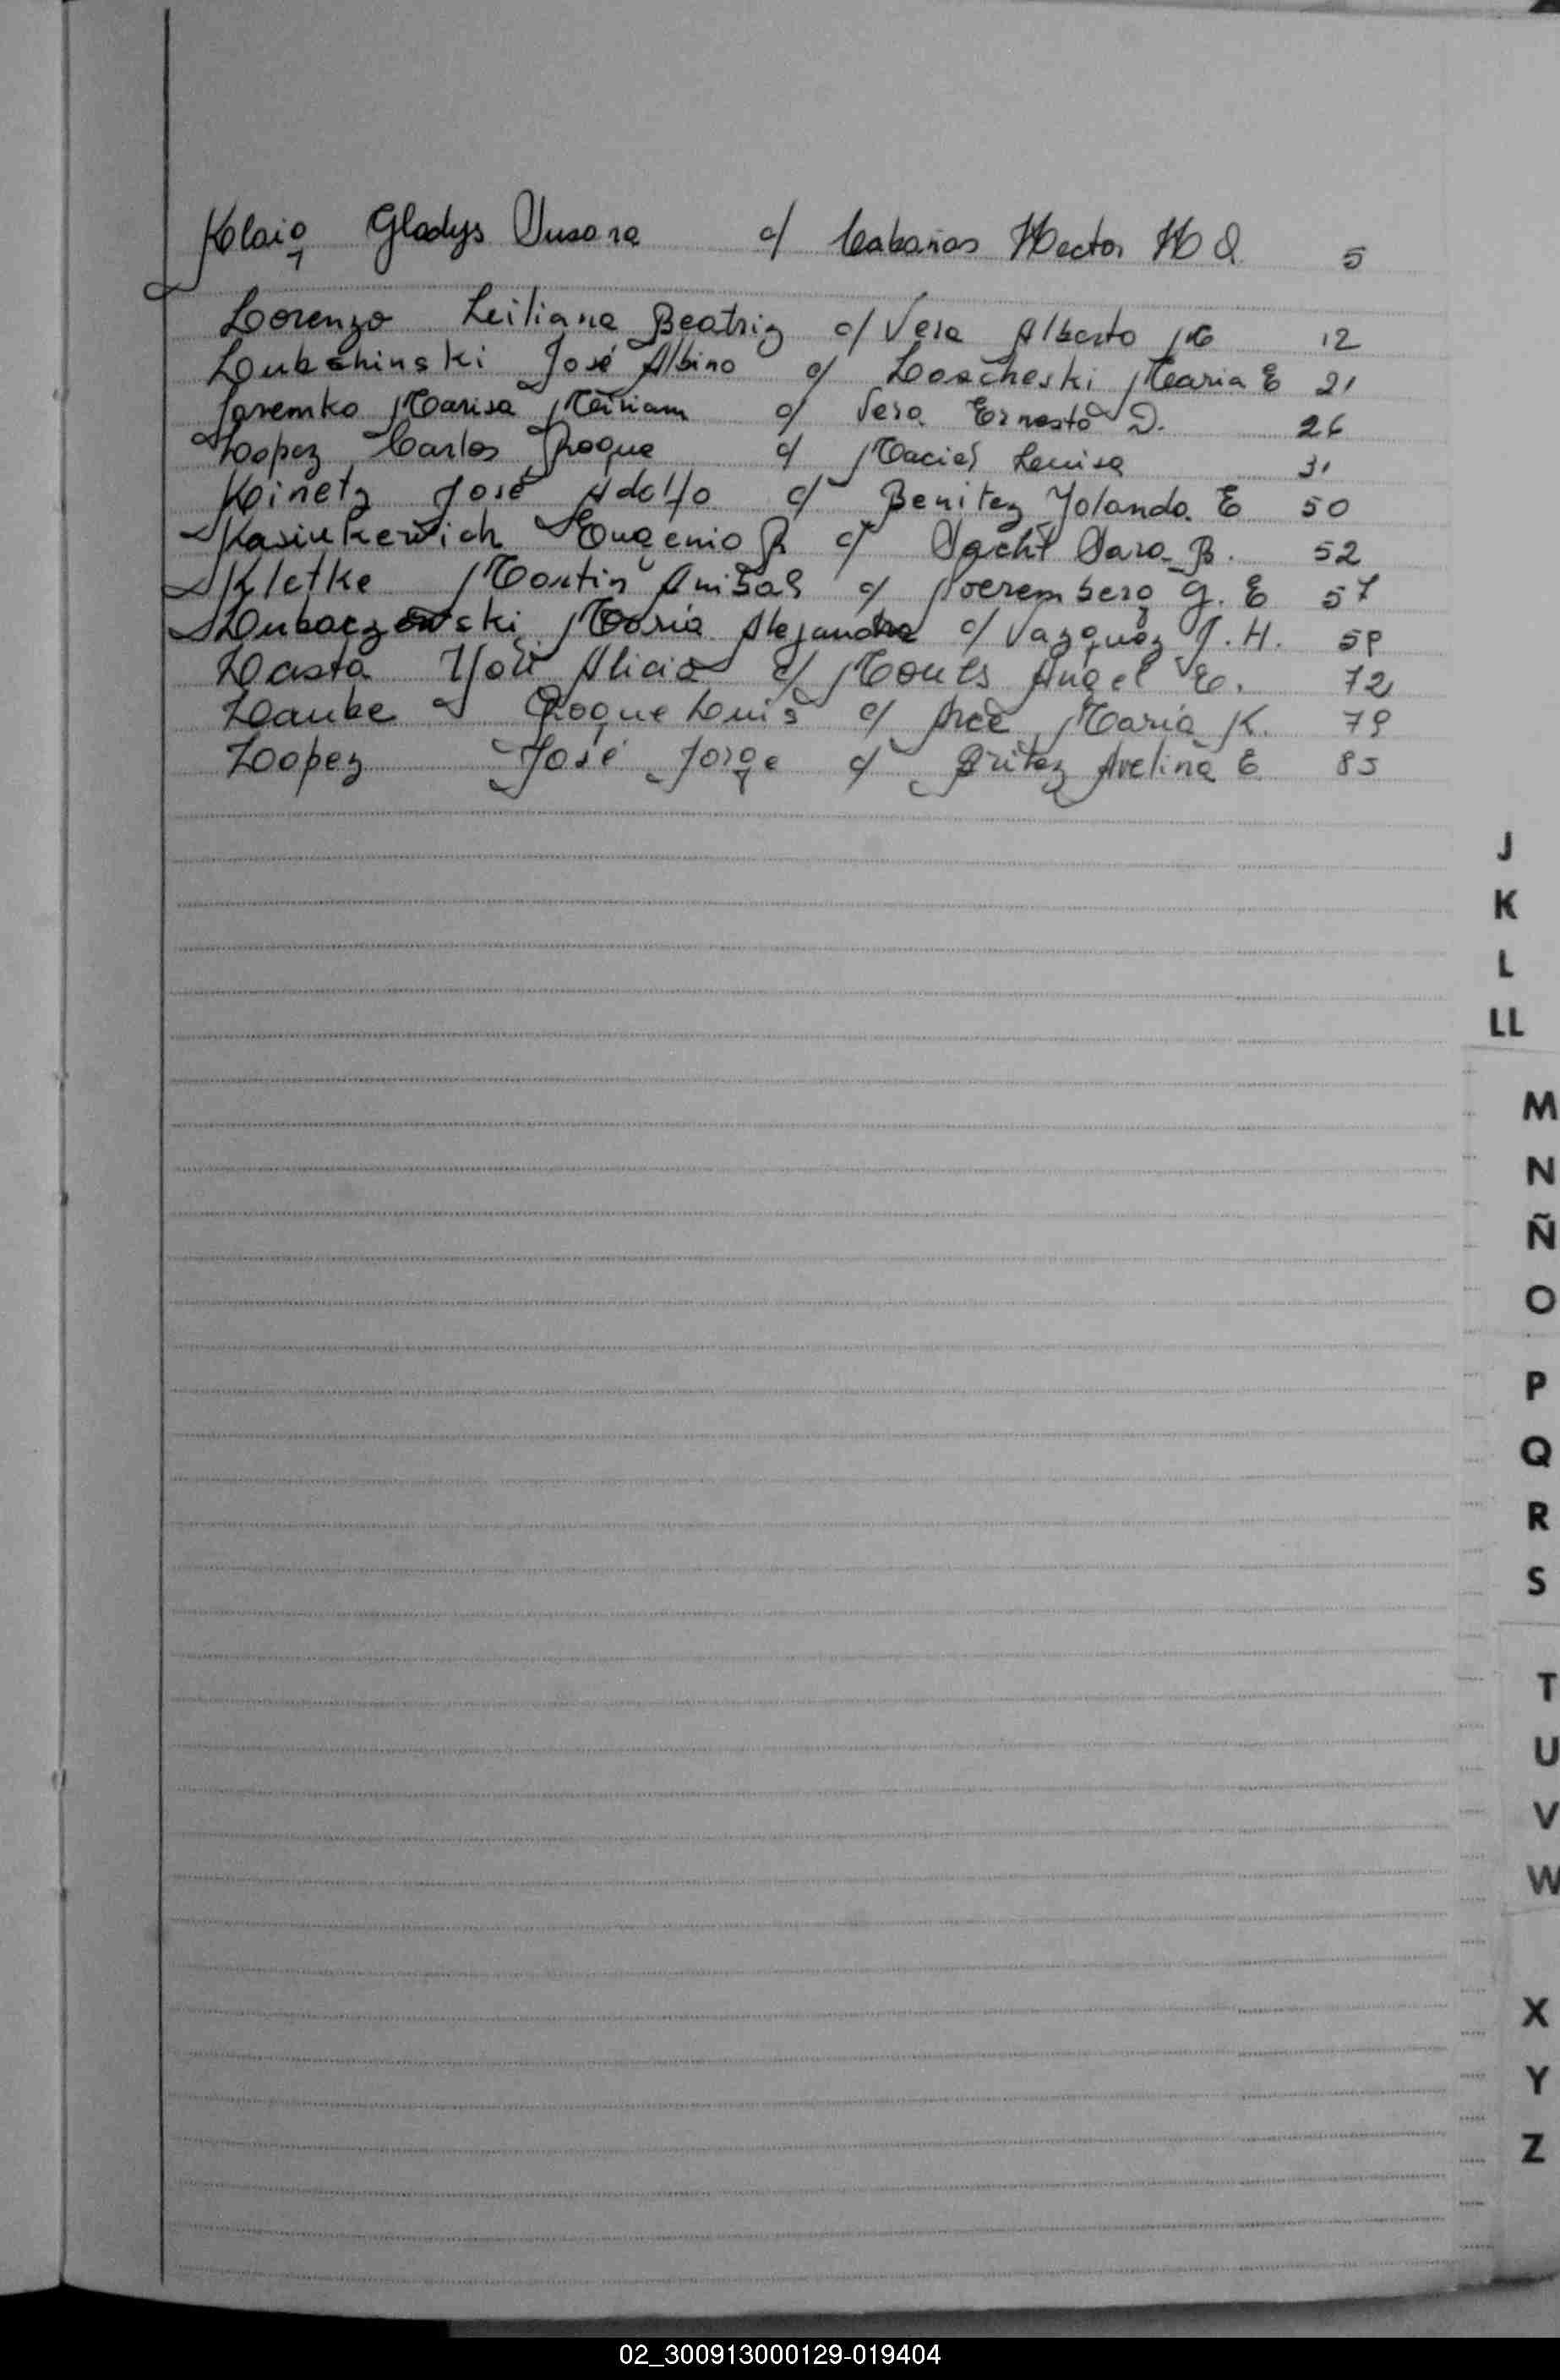 Klaig Gladys Susana c/ Cabañas Hector H O 5
Lorenzo Leiliana Beatriz c/ Vera Alberto M 12
Lubchinski José Albino c/ Loscheski Maria E 21
Jaremko Marisa Miriam c/ Vera Ernesto D. 26
Lopez Carlos Roque c/ Maciel Luisa 31
Keinetz José Adolfo c/ Benitez Yolanda E 50
Kasiukewich Eugenio R c/ Sacht Sara B. 52
Kletke Martin Anibal c/ Noremberg G. E 57
Lubaczewski Maria Alejandra c/ Vazquez J. H. 59
Dasta Yoli Alicia c/ Angel E. 72
Laube Roque Luis c/ Arce Maria K. 79
Lopez José Jorge c/ Britez Avelina E 85
J
K
L
LL
M
N
Ñ
O
P
Q
R
S
T
U
V
W
X
Y
Z
02_300913000129-019404